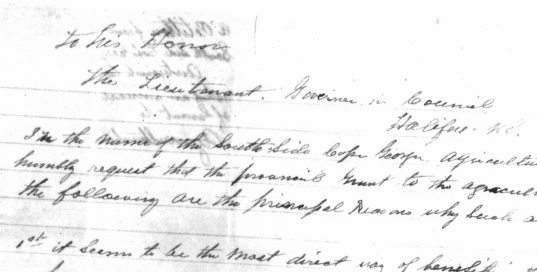 to his Honor
the Lieutenant. Governer in Council
Halifax. N.S.
In the name of the South Side Cape George. Agricultu
humbly request that the provincil Grant to the agricul
the following are the principal Reasons why such a
1st it seems to be the most direct way of benefit